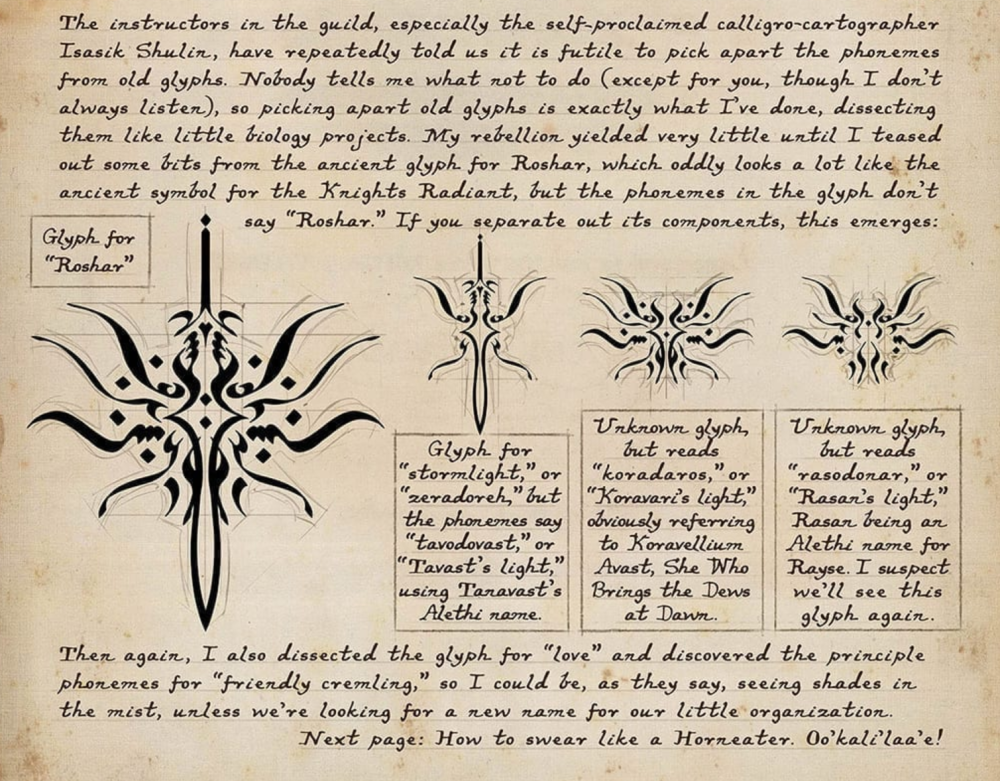 The instructors in the guild, especially the self-proclaimed calligro-cartographer
Isasik Shulin, have repeatedly told us it is futile to pick apart the phonemes
from old glyphs. Nobody tells me what not to do (except for you, though I don't
always listen), so picking apart old glyphs is exactly what I've done, dissecting
them like little biology projects. My rebellion yielded very little until I teased
out some bits from the ancient glyph for Roshar, which oddly looks a lot like the
ancient symbol for the Knights Radiant, but the phonemes in the glyph don't
say "Roshar." If you separate out its components, this emerges:
Glyph for
"Roshar"
Glyph for
"stormlight," or
"zeradoreh," but
the phonemes say
"tavodovast," or
"Tavast's light,"
using Tanavast's
Alethi name.
Unknown glyph,
but reads
"koradaros," or
"Koravari's light,"
obviously referring
to Koravellium
Avast, She Who
Brings the Dews
at Dawn.
Unknown glyph,
but reads
"rasodonar," or
"Rasan's light,"
Rasan being an
Alethi name for
Rayse. I suspect
we'll see this
glyph again.
Then again, I also dissected the glyph for "love" and discovered the principle
phonemes for "friendly cremling," so I could be, as they say, seeing shades in
the mist, unless we're looking for a new name for our little organization.
Next page: How to swear like a Horneater. Oo'kali'laa'e!